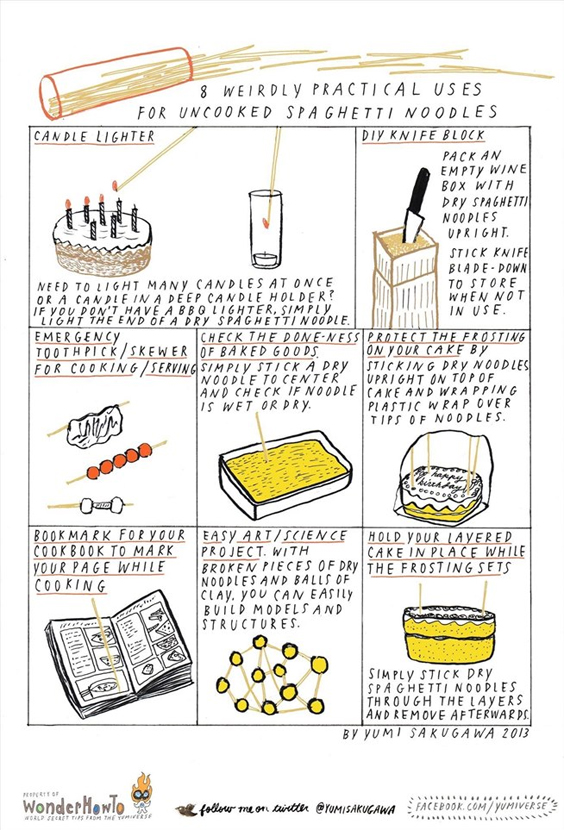 8 WEIRDLY PRACTICAL USES
FOR UNCOOKED SPAGHETTI NOODLES
CANDLE LIGHTER
NEED TO LIGHT MANY CANDLES AT ONCE
OR A CANDLE IN A DEEP CANDLE HOLDER?
IF YOU DON'T HAVE A BBQ LIGHTER, SIMPLY
LIGHT THE END OF A DRY SPAGHETTI NOODLE.
DIY KNIFE BLOCK
PACK AN
EMPTY WINE
BOX WITH
DRY SPAGHETTI
NOODLES
UPRIGHT.
STICK KNIFE
BLADE-DOWN
TO STORE
WHEN NOT
IN USE.
EMERGENCY
TOOTHPICK/SKEWER
FOR COOKING/SERVING
CHECK THE DONE-NESS
OF BAKED GOODS.
SIMPLY STICK A DRY
NOODLE TO CENTER
AND CHECK IF NOODLE
IS WET OR DRY.
PROTECT THE FROSTING
ON YOUR CAKE BY
STICKING DRY NOODLES
UPRIGHT ON TOP OF
CAKE AND WRAPPING
PLASTIC WRAP OVER
TIPS OF NOODLES.
happy
birthday
BOOKMARK FOR YOUR
COOKBOOK TO MARK
YOUR PAGE WHILE
COOKING
EASY ART/SCIENCE
PROJECT. WITH
BROKEN PIECES OF DRY
NOODLES AND BALLS OF
CLAY, YOU CAN EASILY
BUILD MODELS AND
STRUCTURES.
HOLD YOUR LAYERED
CAKE IN PLACE WHILE
THE FROSTING SETS
SIMPLY STICK DRY
SPAGHETTI NOODLES
THROUGH THE LAYERS
AND REMOVE AFTERWARDS.
BY YUMI SAKUGAWA 2013
PROPERTY OF
WonderHowTo
WORLD SECRET TIPS FROM THE YUMIVERSE
follow me on twitter @YUMISAKUGAWA
FACEBOOK.COM/YUMIVERSE